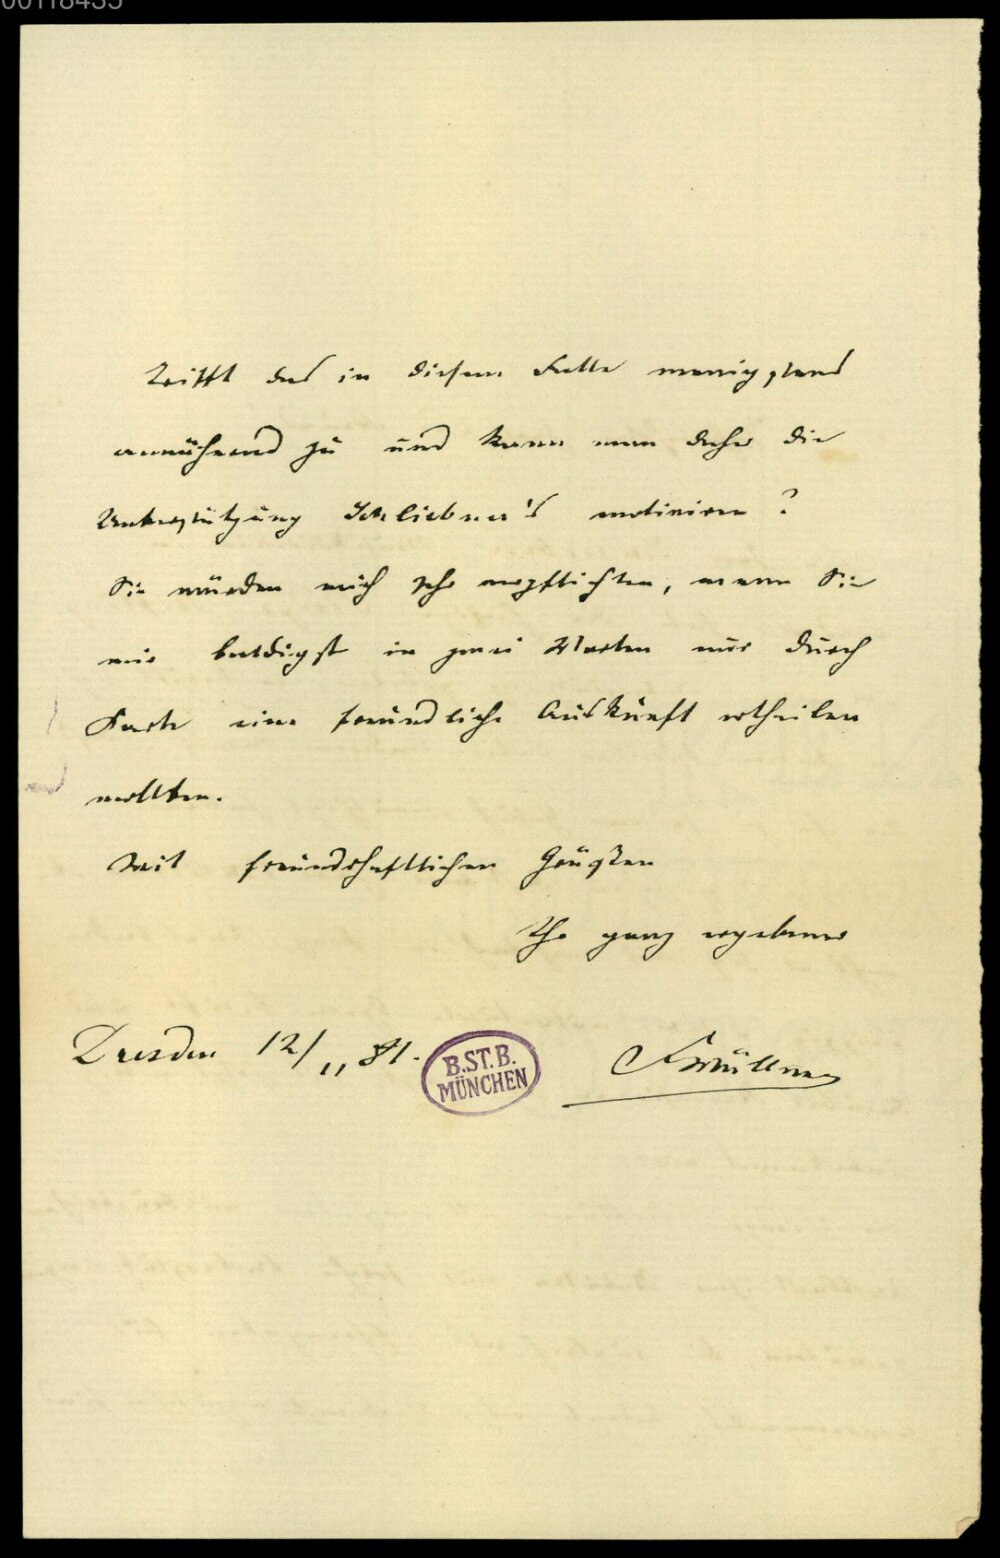 00118435
Trifft das in diesem Falle wenigstens
annährend zu und kann man daher die
Unterstützung Schliebner's motiviren?
Sie würden mich sehr verpflichten, wenn Sie
mir baldigst in zwei Worten nur durch
Karte eine freundliche Auskunft ertheilen
wollten.
Mit freundschaftlichen Grüßen
Ihr ganz ergebener
Dresden 12/11 81.
B.ST.B.
MÜNCHEN
FWüllner